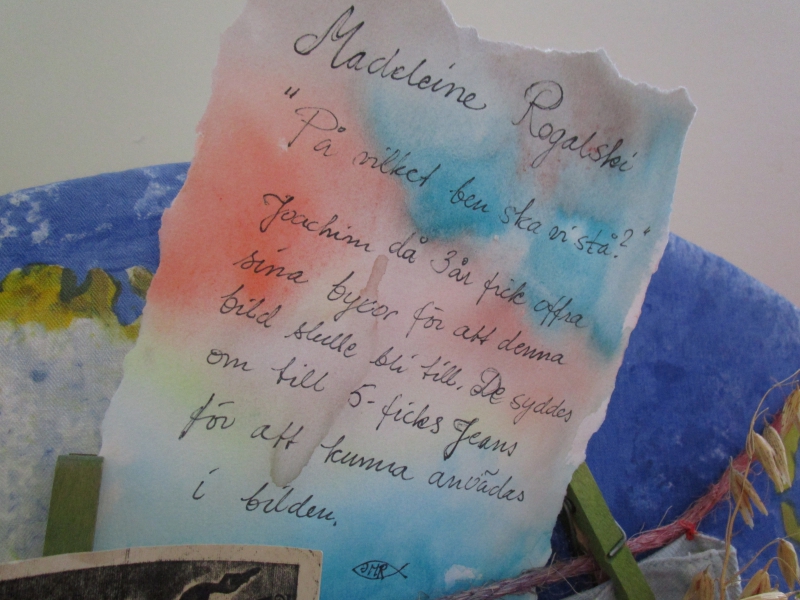 Madeleine Rogalski
"På vilket ben ska vi stå?"
Joachim då 3 år fick offra
sina byxor för att denna
bild skulle bli till. De syddes
om till 5-ficks Jeans
för att kunna anvädas
i bilden.
JMR